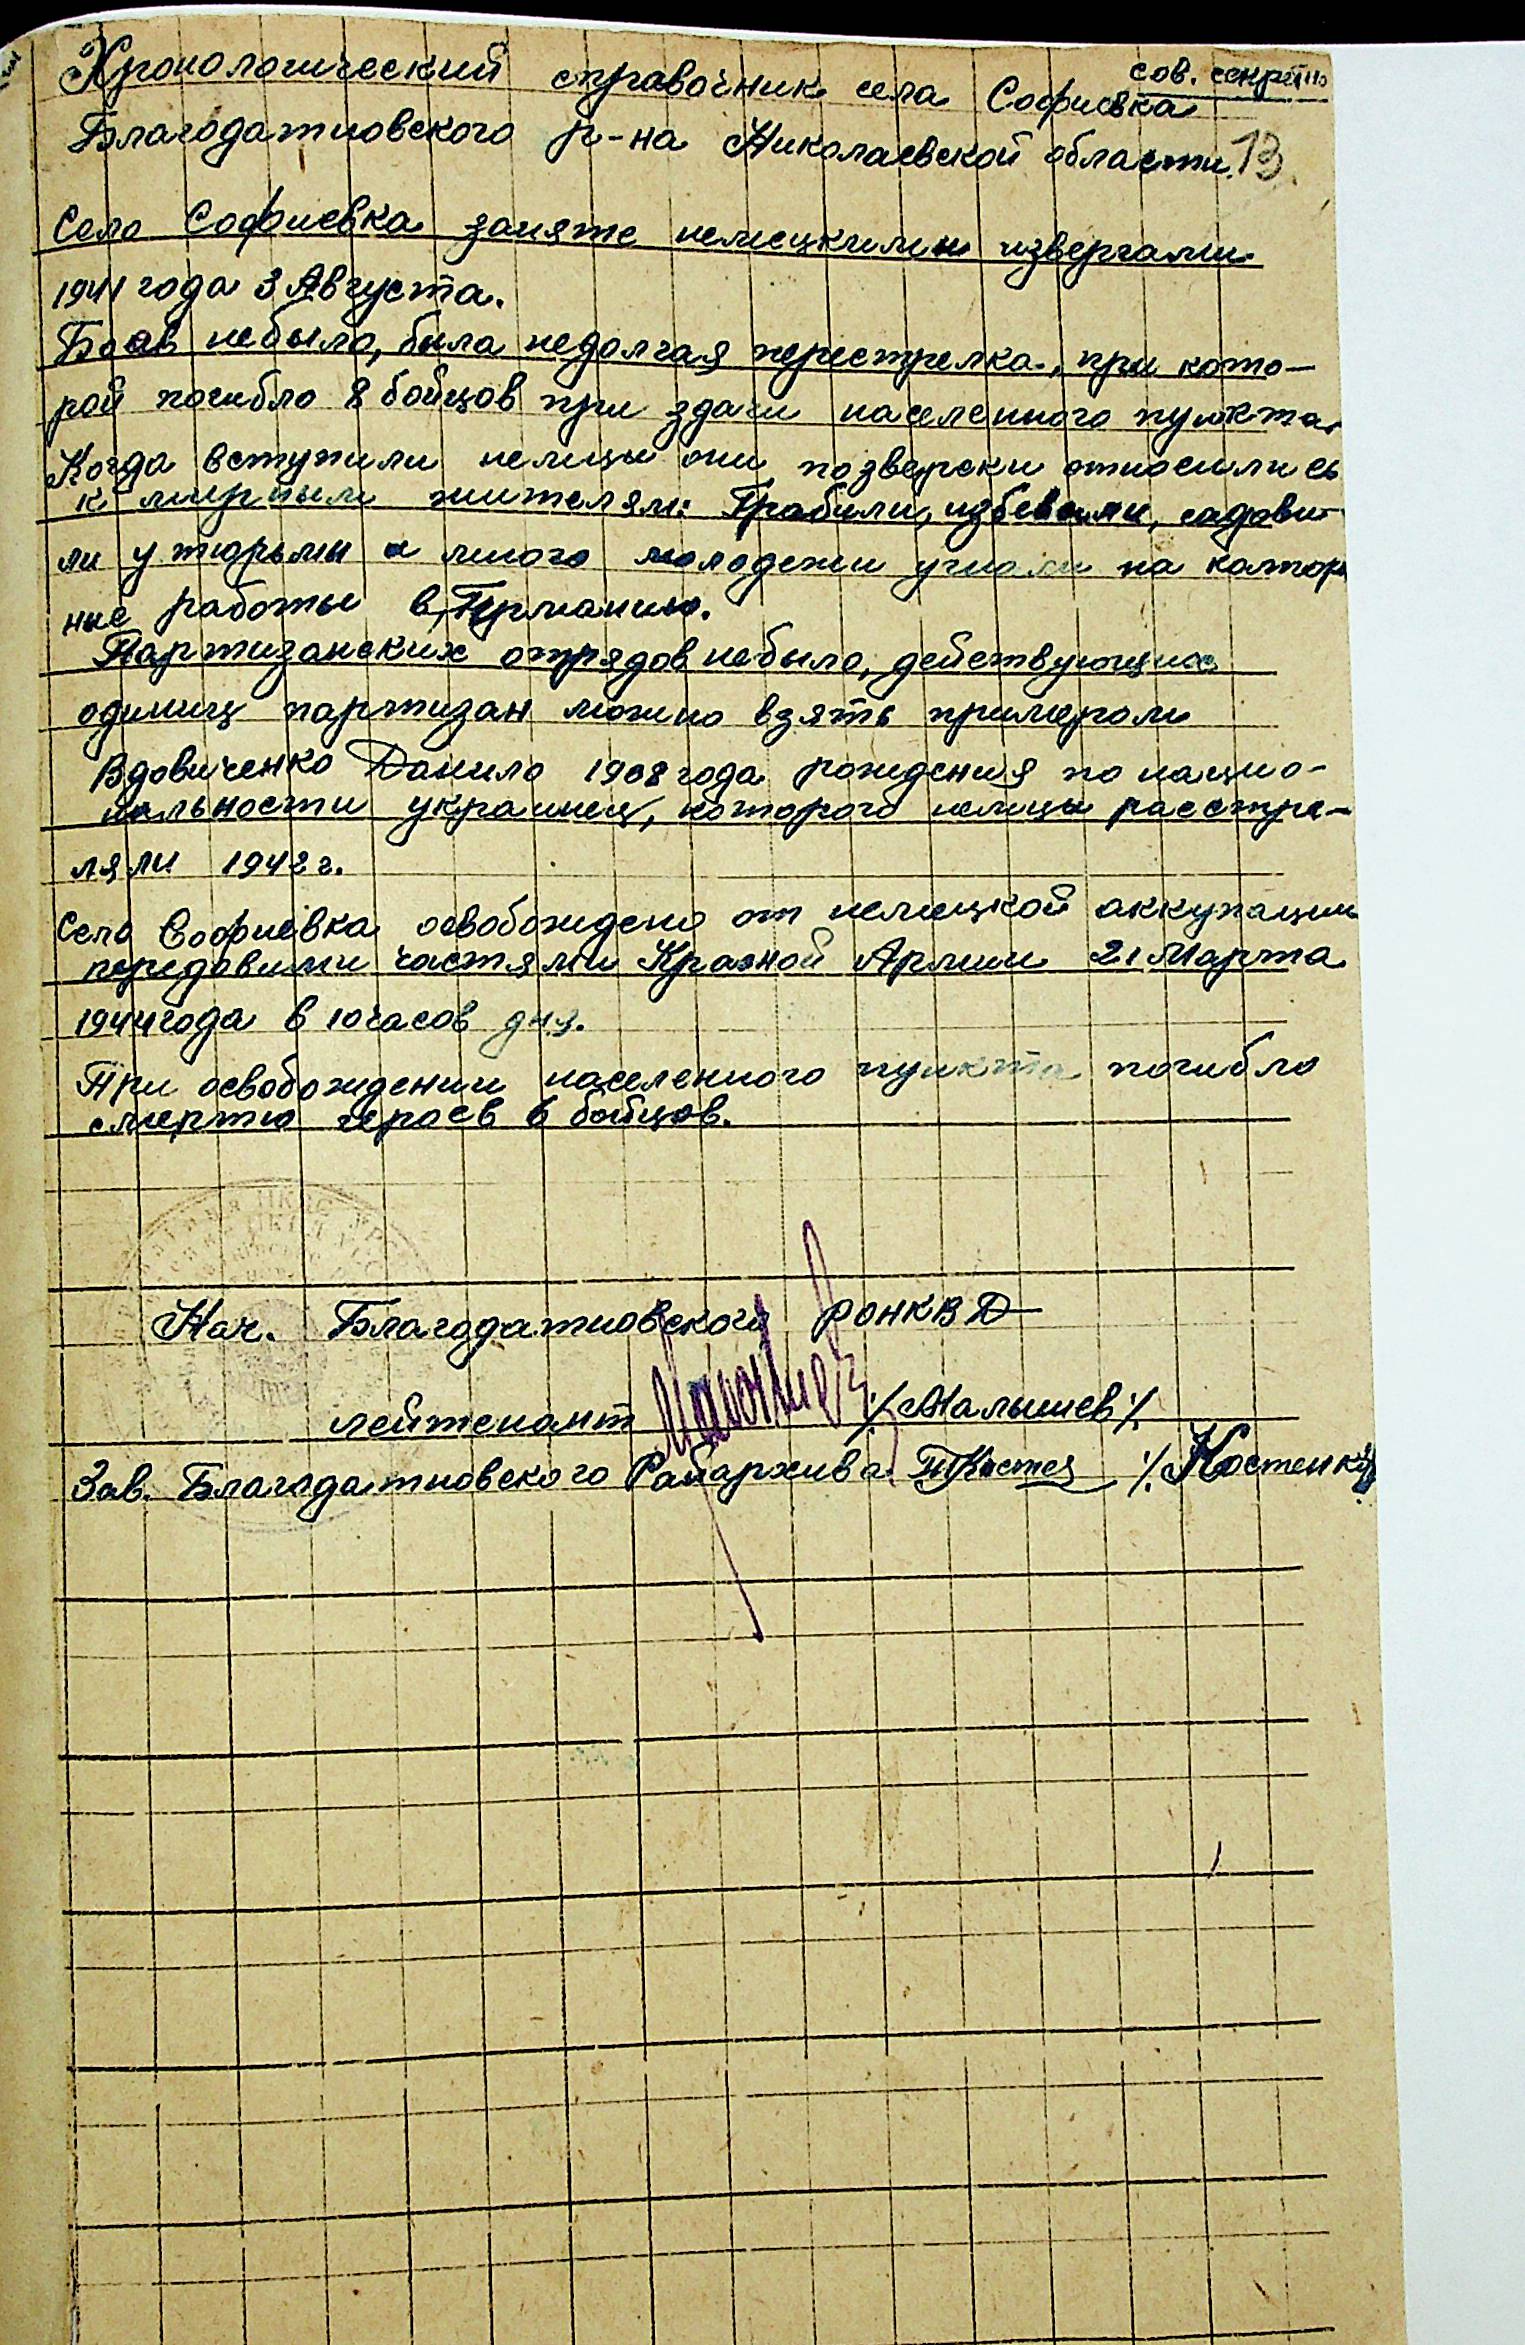 сов. секретно
Хронологический справочник села Софиевка
Благодатновского р-на Николаевской области.
13
Село Софиевка занято немецкими извергами
1941 года 3 Августа.
Боав небыло, была недолгая перестрелка, при кото-
рой погибло 8 бойцов при здачи населенного пункта.
Когда вступили немцы они позверски относились
к мирным жителям: Грабили, избевали, садови-
ли у тюрьмы и много молодежи угнали на каторж
ные работы в Германию.
Партизанских отрядов небыло, действующих
одиниц партизан можно взять примером
Вдовиченко Данило 1908 года рождения по нацио-
нальности украинец, которого немцы расстре-
ляли 1942 г.
Село Софиевка освобождено от немецкой аккупации
передовыми частями Красной Армии 21 Марта
1944 года в 10 часов дня.
При освобождении населенного пункта погибло
смертю героев 6 бойцов.
Нач. Благодатновского РОНКВД
лейтенант /Малышев/
Зав. Благодатновского Райархива /Костенко/